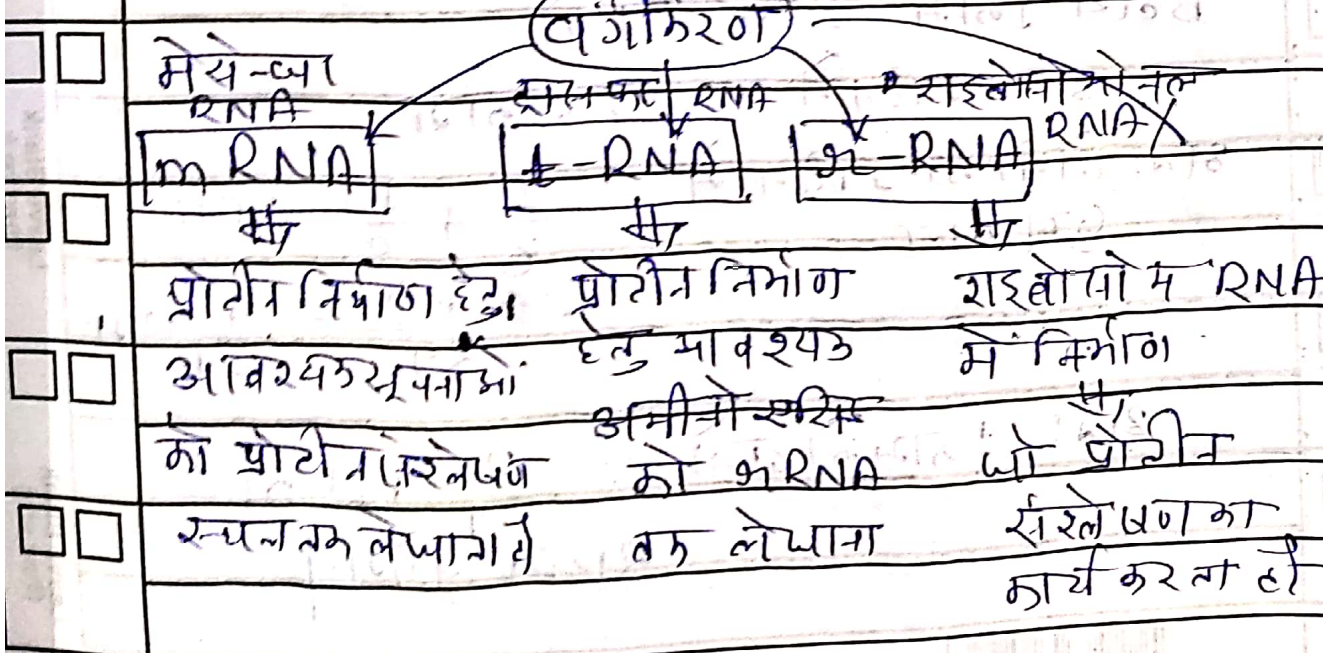 वर्गीकरण
मैसेन्जर
RNA
mRNA
ट्रांसफर RNA
t-RNA
राइबोसोमल
RNA
r-RNA
प्रोटीन निर्माण हेतु
आवश्यक सूचनाओं
को प्रोटीन संश्लेषण
स्थल तक ले जाता है
प्रोटीन निर्माण
हेतु आवश्यक
अमीनो
को RNA
तक ले जाना
राइबोसोम RNA
में निर्माण
जो प्रोटीन
संश्लेषण का
कार्य करता है